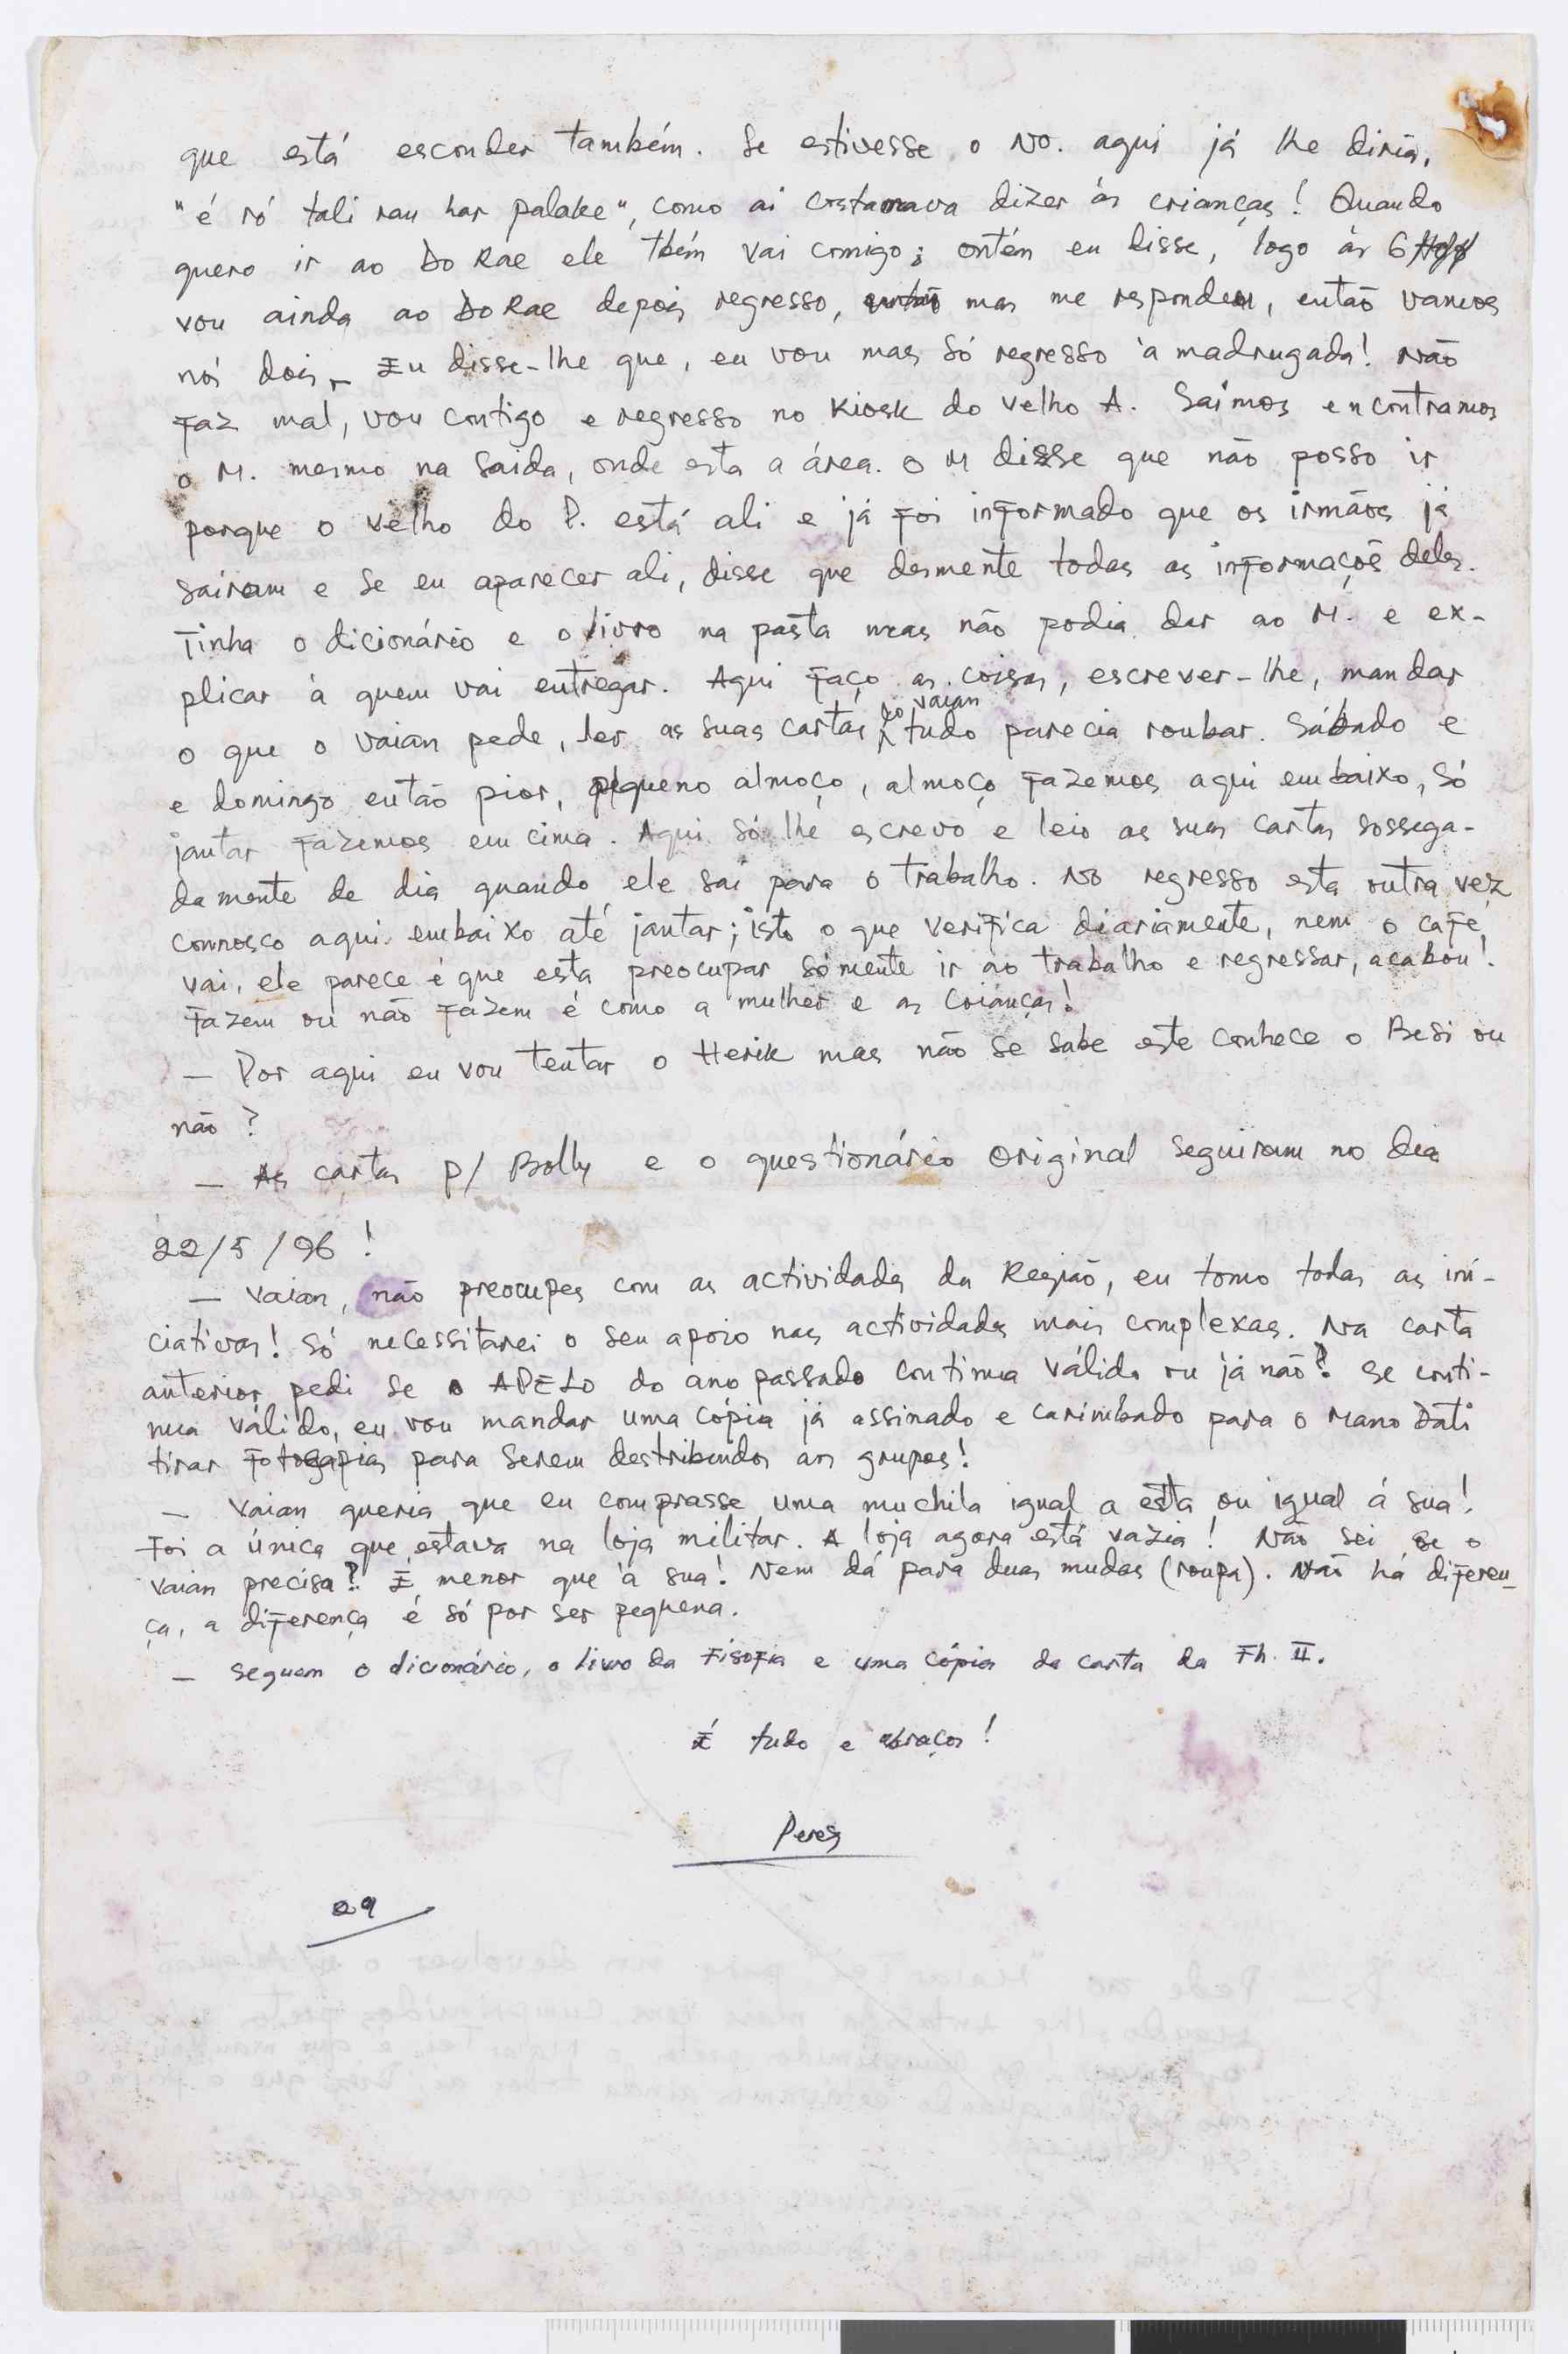 que está esconder também. Se estivesse o No. aqui já lhe diria,
"é só tali rau har palake", como ai costumava dizer às crianças! Quando
quero ir ao Do Rae ele tbém vai comigo; ontém eu disse, logo às 6
vou ainda ao Do Rae depois regresso, mas me respondeu, então vamos
nós dois. Eu disse-lhe que, eu vou mas só regresso à madrugada! Não
faz mal, vou contigo e regresso no Kiosk do velho A. Saímos encontramos
o M. mesmo na saida, onde esta a área. O M disse que não posso ir
porque o velho do P. está ali e já foi informado que os irmãos já
sairam e se eu aparecer ali, disse que desmente todas as informaçoẽ deles.
Tinha o dicionário e o livro na pasta mas não podia dar ao M. e ex-
plicar à quem vai entregar. Aqui faço as coisas, escrever-lhe, mandar
o que o vaian pede, ler as suas cartas do vaian tudo parecia roubar. Sábado e
e domingo então pior, pequeno almoço, almoço fazemos aqui embaixo, só
jantar fazemos em cima. Aqui só lhe escrevo e leio as suas cartas sossega-
damente de dia quando ele sai para o trabalho. No regresso esta outra vez
connosco aqui embaixo até jantar; isto o que verifica diariamente, nem o café
vai, ele parece é que esta preocupar sómente ir ao trabalho e regressar, acabou!
Fazem ou não fazem é como a mulher e as crianças!
— Por aqui eu vou tentar o Herik mas não se sabe este conhece o Besi ou
não?
— As cartas p/ Bolly e o questionário original seguiram no dia
22/5/96!
— Vaian, não preocupes com as actividades da Região, eu tomo todas as ini-
ciativas! Só necessitarei o seu apoio nas actividades mais complexas. Na carta
anterior pedi se o APELO do ano passado continua válido ou já não? Se conti-
nua válido, eu vou mandar uma cópia já assinado e carimbado para o Mano Dati
tirar fotocapias para serem destribuidos aos grupos!
— Vaian queria que eu comprasse uma muchila igual a esta ou igual á sua!
Foi a única que estava na loja militar. A loja agora está vazia! Não sei se o
vaian precisa? É menor que à sua! Nem dá para duas mudas (roupa). Não há diferen-
ça, a diferença é só por ser pequena.
— Seguem o dicionário, o livro da Fisofia e uma cópia da carta da Fh. II.
É tudo e abraços!
Peres
29